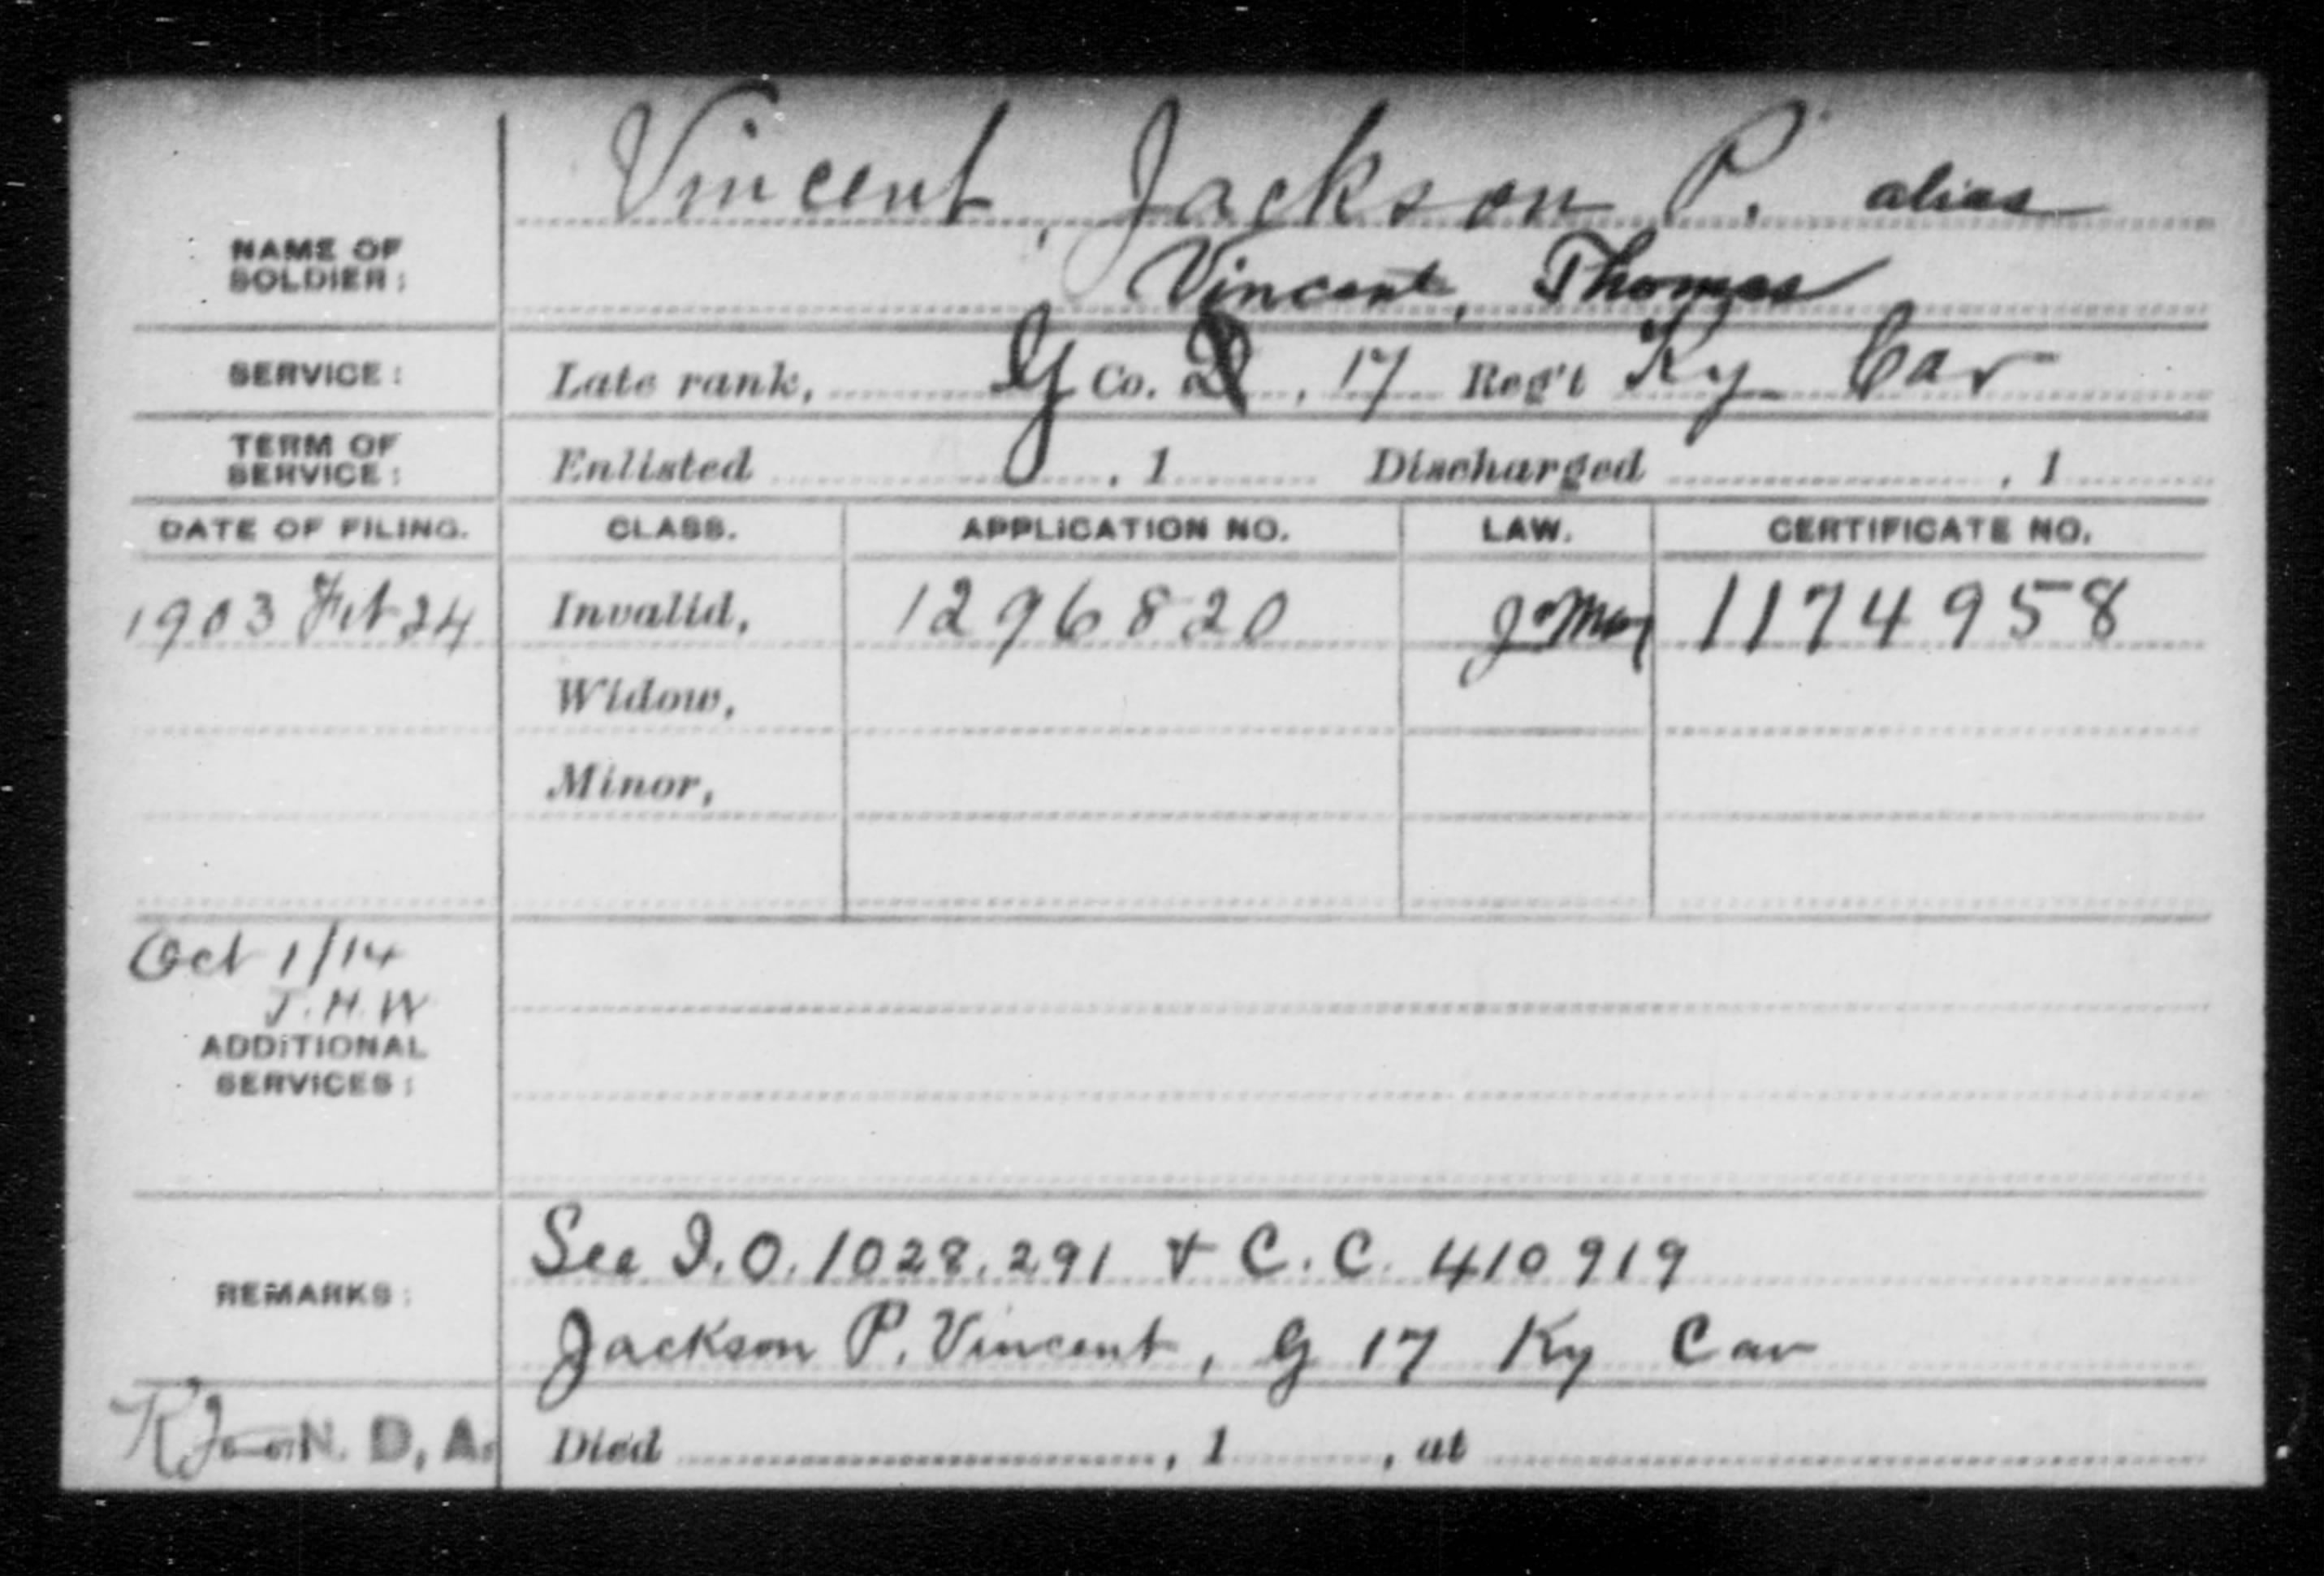 Vincent, Jackson P. alias
NAME OF
SOLDIER:
Vincent, Thomas
SERVICE: Late rank, G Co. , 17 Reg't Ky Cav
TERM OF
SERVICE: Enlisted , 1 Discharged , 1
DATE OF FILING. CLASS. APPLICATION NO. LAW. CERTIFICATE NO.
1903 Feb 24 Invalid, 1296820 1174958
Widow,
Minor,
Oct 1/14
J.H.W
ADDITIONAL
SERVICES:
See I.O. 1028.291 & C.C. 410919
REMARKS:
Jackson P. Vincent, G 17 Ky Cav
N. D. A. Died , 1 , at